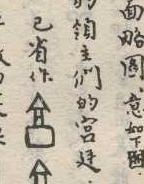 面略圖，意如下圖
的領主們的宮廷．
已省作